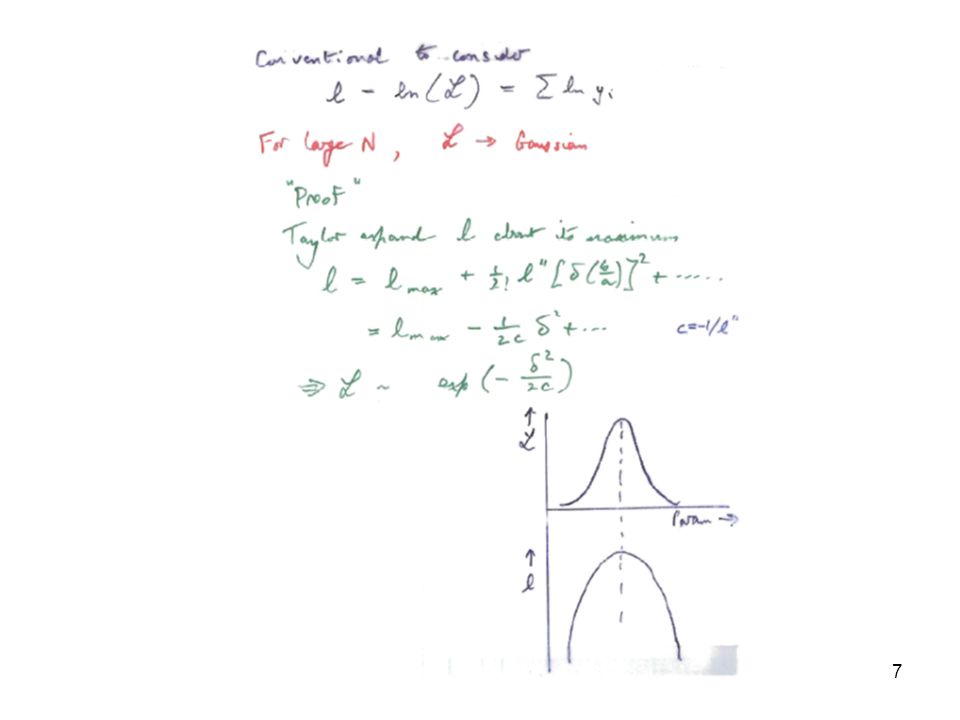 Conventional to consider
l = ln(ℒ) = Σ ln yᵢ
For large N, ℒ → Gaussian
"Proof"
Taylor expand l about its maximum
l = l_max + 1/2! l" [δ(b/a)]² + ......
= l_max - 1/2c δ² + ...   c=-1/l"
⇒ ℒ ~ exp(- δ²/2c)
↑
ℒ
Param →
↑
l
7